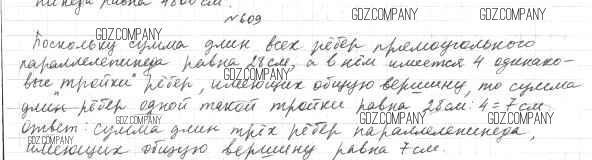 пипеда равна 4800 см.
GDZ.COMPANY GDZ.COMPANY
№609
GDZ.COMPANY
Поскольку сумма длин всех рёбер прямоугольного
параллелепипеда равна 28 см, а в нём имеется 4 одинако-
GDZ.COMPANY
вые "тройки" рёбер, имеющих общую вершину, то сумма
длин рёбер одной такой тройки равна 28 см : 4 = 7 см.
GDZ.COMPANY GDZ.COMPANY GDZ.COMPANY
Ответ: сумма длин трёх рёбер параллелепипеда,
GDZ.COMPANY
имеющих общую вершину равна 7 см.